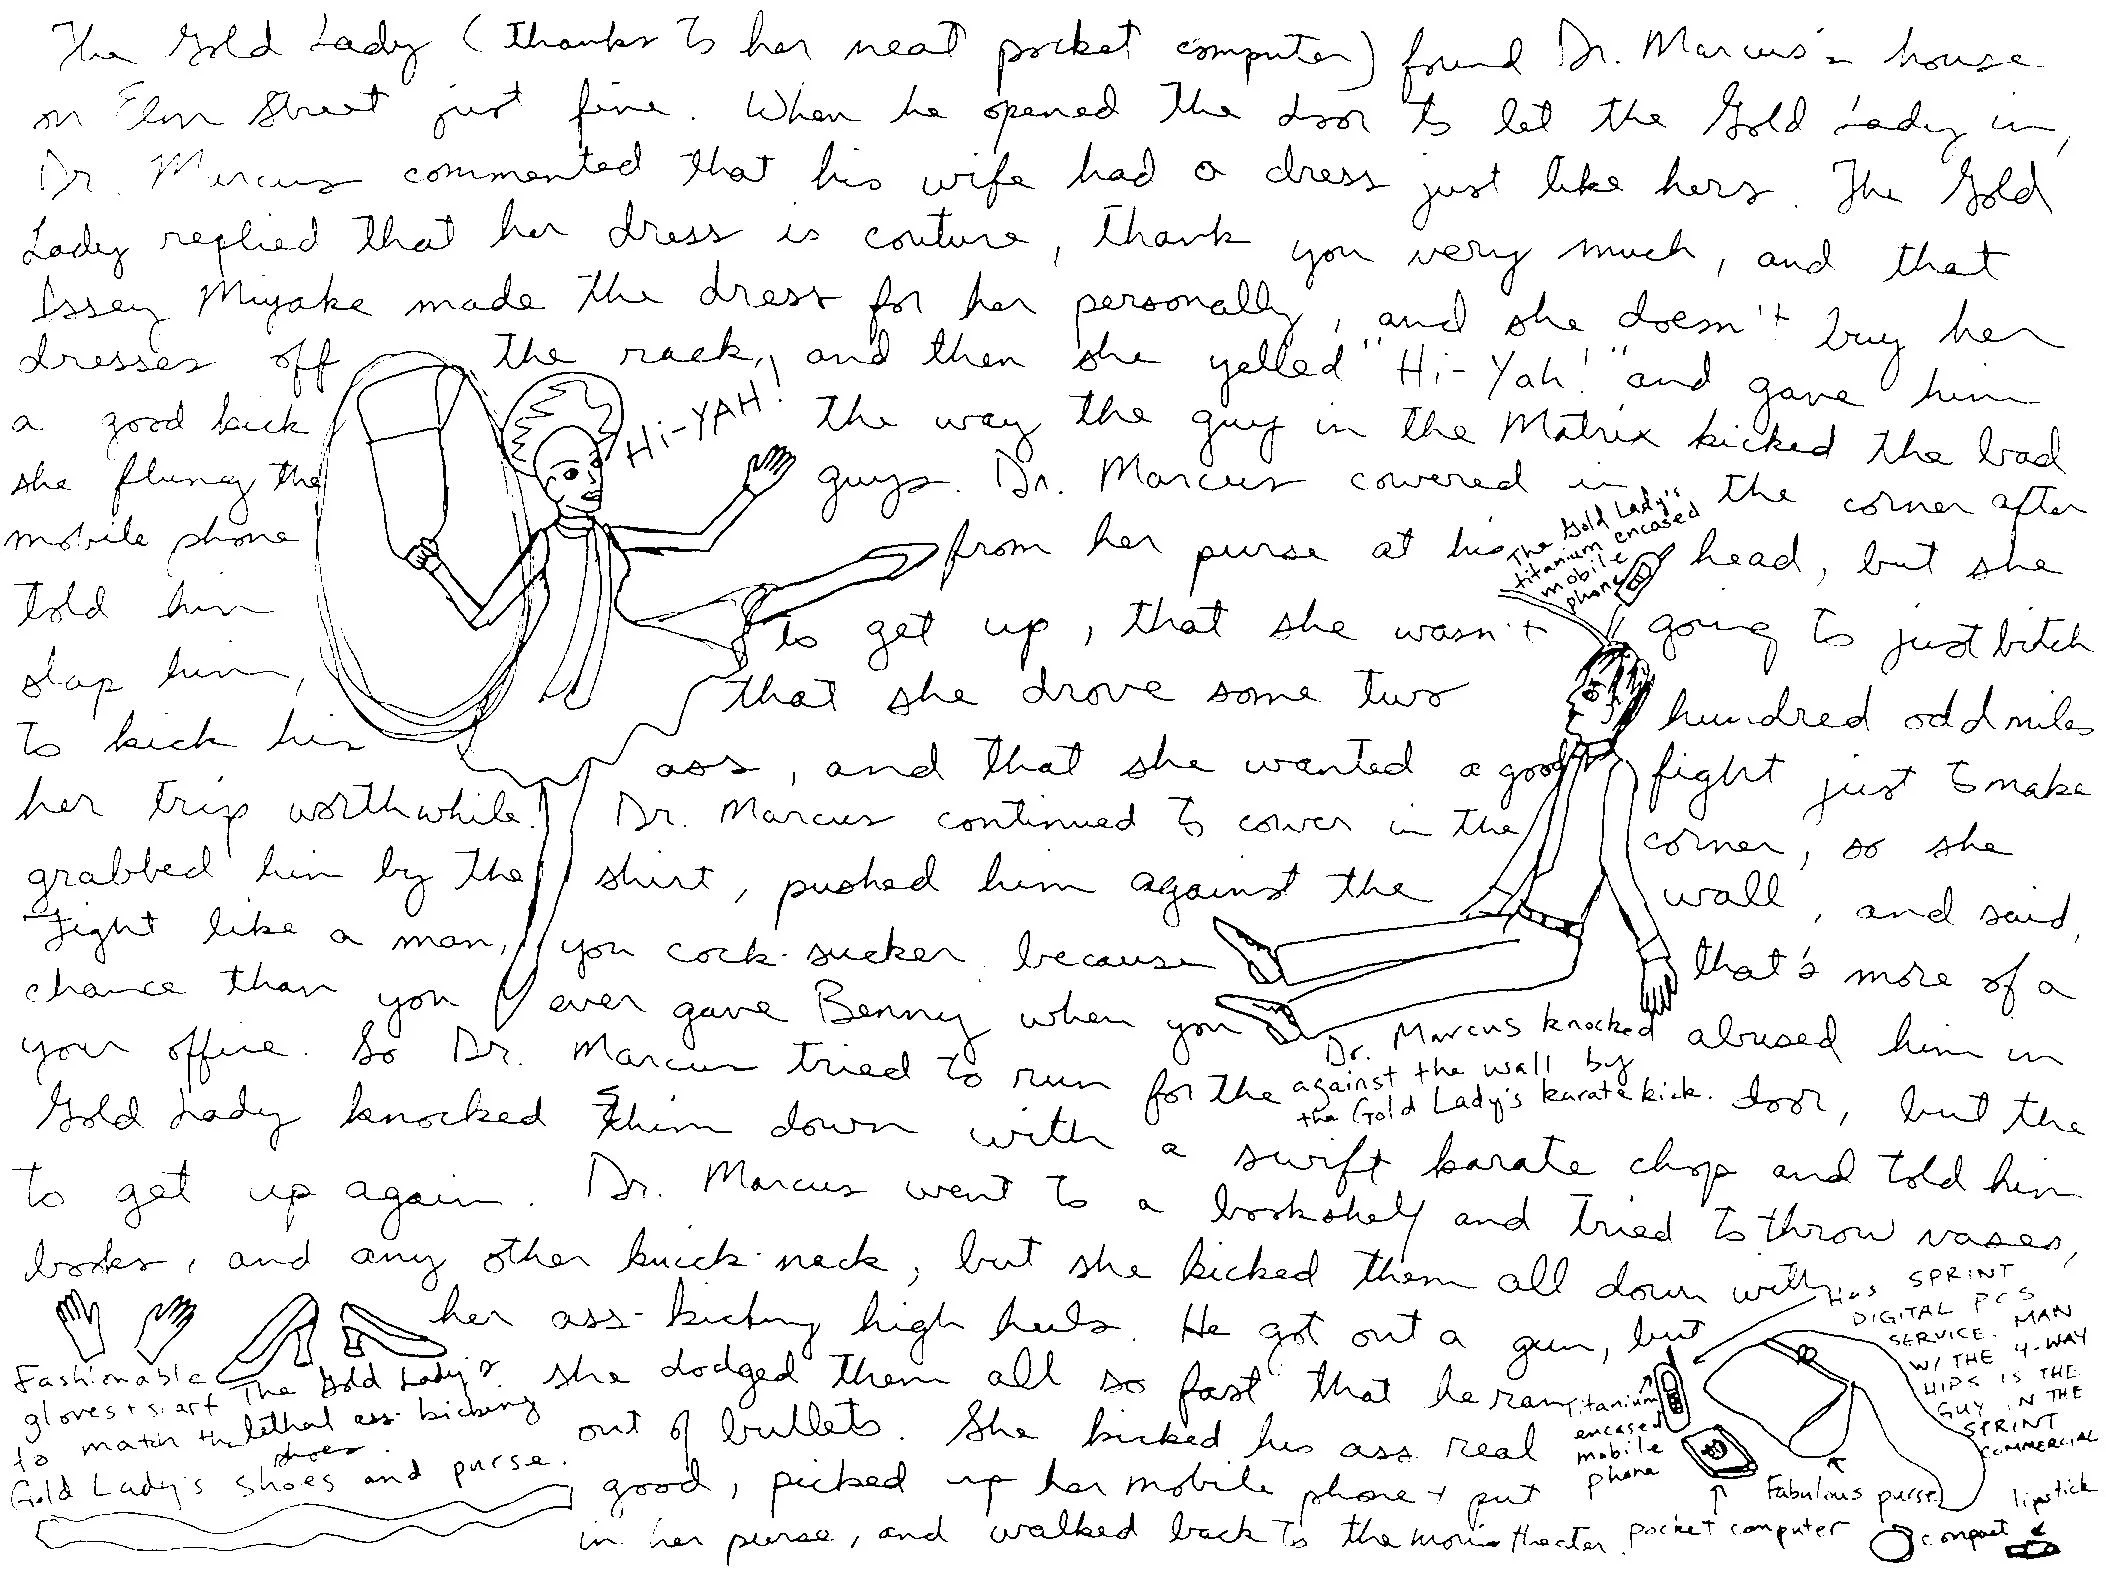 The Gold Lady (thanks to her neat pocket computer) found Dr. Marcus's house
on Elm Street just fine. When he opened the door to let the Gold Lady in,
Dr. Marcus commented that his wife had a dress just like hers. The Gold
Lady replied that her dress is couture, thank you very much, and that
Issey Miyake made the dress for her personally, and she doesn't buy her
dresses off the rack, and then she yelled "Hi-Yah!" and gave him
a good kick the way the guy in the Matrix kicked the bad
guys. Dr. Marcus cowered in the corner after
she flung the
mobile phone from her purse at his head, but she
told him to get up, that she wasn't going to just bitch
slap him, that she drove some two hundred odd miles
to kick his ass, and that she wanted a good fight just to make
her trip worthwhile. Dr. Marcus continued to cower in the corner, so she
grabbed him by the shirt, pushed him against the wall, and said,
Fight like a man, you cock-sucker because that's more of a
chance than you ever gave Benny when you abused him in
your office. So Dr. Marcus tried to run for the door, but the
Gold Lady knocked him down with a swift karate chop and told him
to get up again. Dr. Marcus went to a bookshelf and tried to throw vases,
books, and any other knick-nack, but she kicked them all down with
her ass-kicking high heels. He got out a gun, but
she dodged them all so fast that he ran
out of bullets. She kicked his ass real
good, picked up her mobile phone + put
in her purse, and walked back to the movie theater.
Hi-YAH!
The Gold Lady's
titanium encased
mobile
phone
Dr. Marcus knocked
against the wall by
the Gold Lady's karate kick.
Fashionable
gloves + scarf
to match the
Gold Lady's shoes and purse.
The Gold Lady's
lethal ass-kicking
shoes.
Has SPRINT
DIGITAL PCS
SERVICE. MAN
W/ THE 4-WAY
HIPS IS THE
GUY IN THE
SPRINT
COMMERCIAL
titanium
encased
mobile
phone
Fabulous purse
pocket computer
compact
lipstick